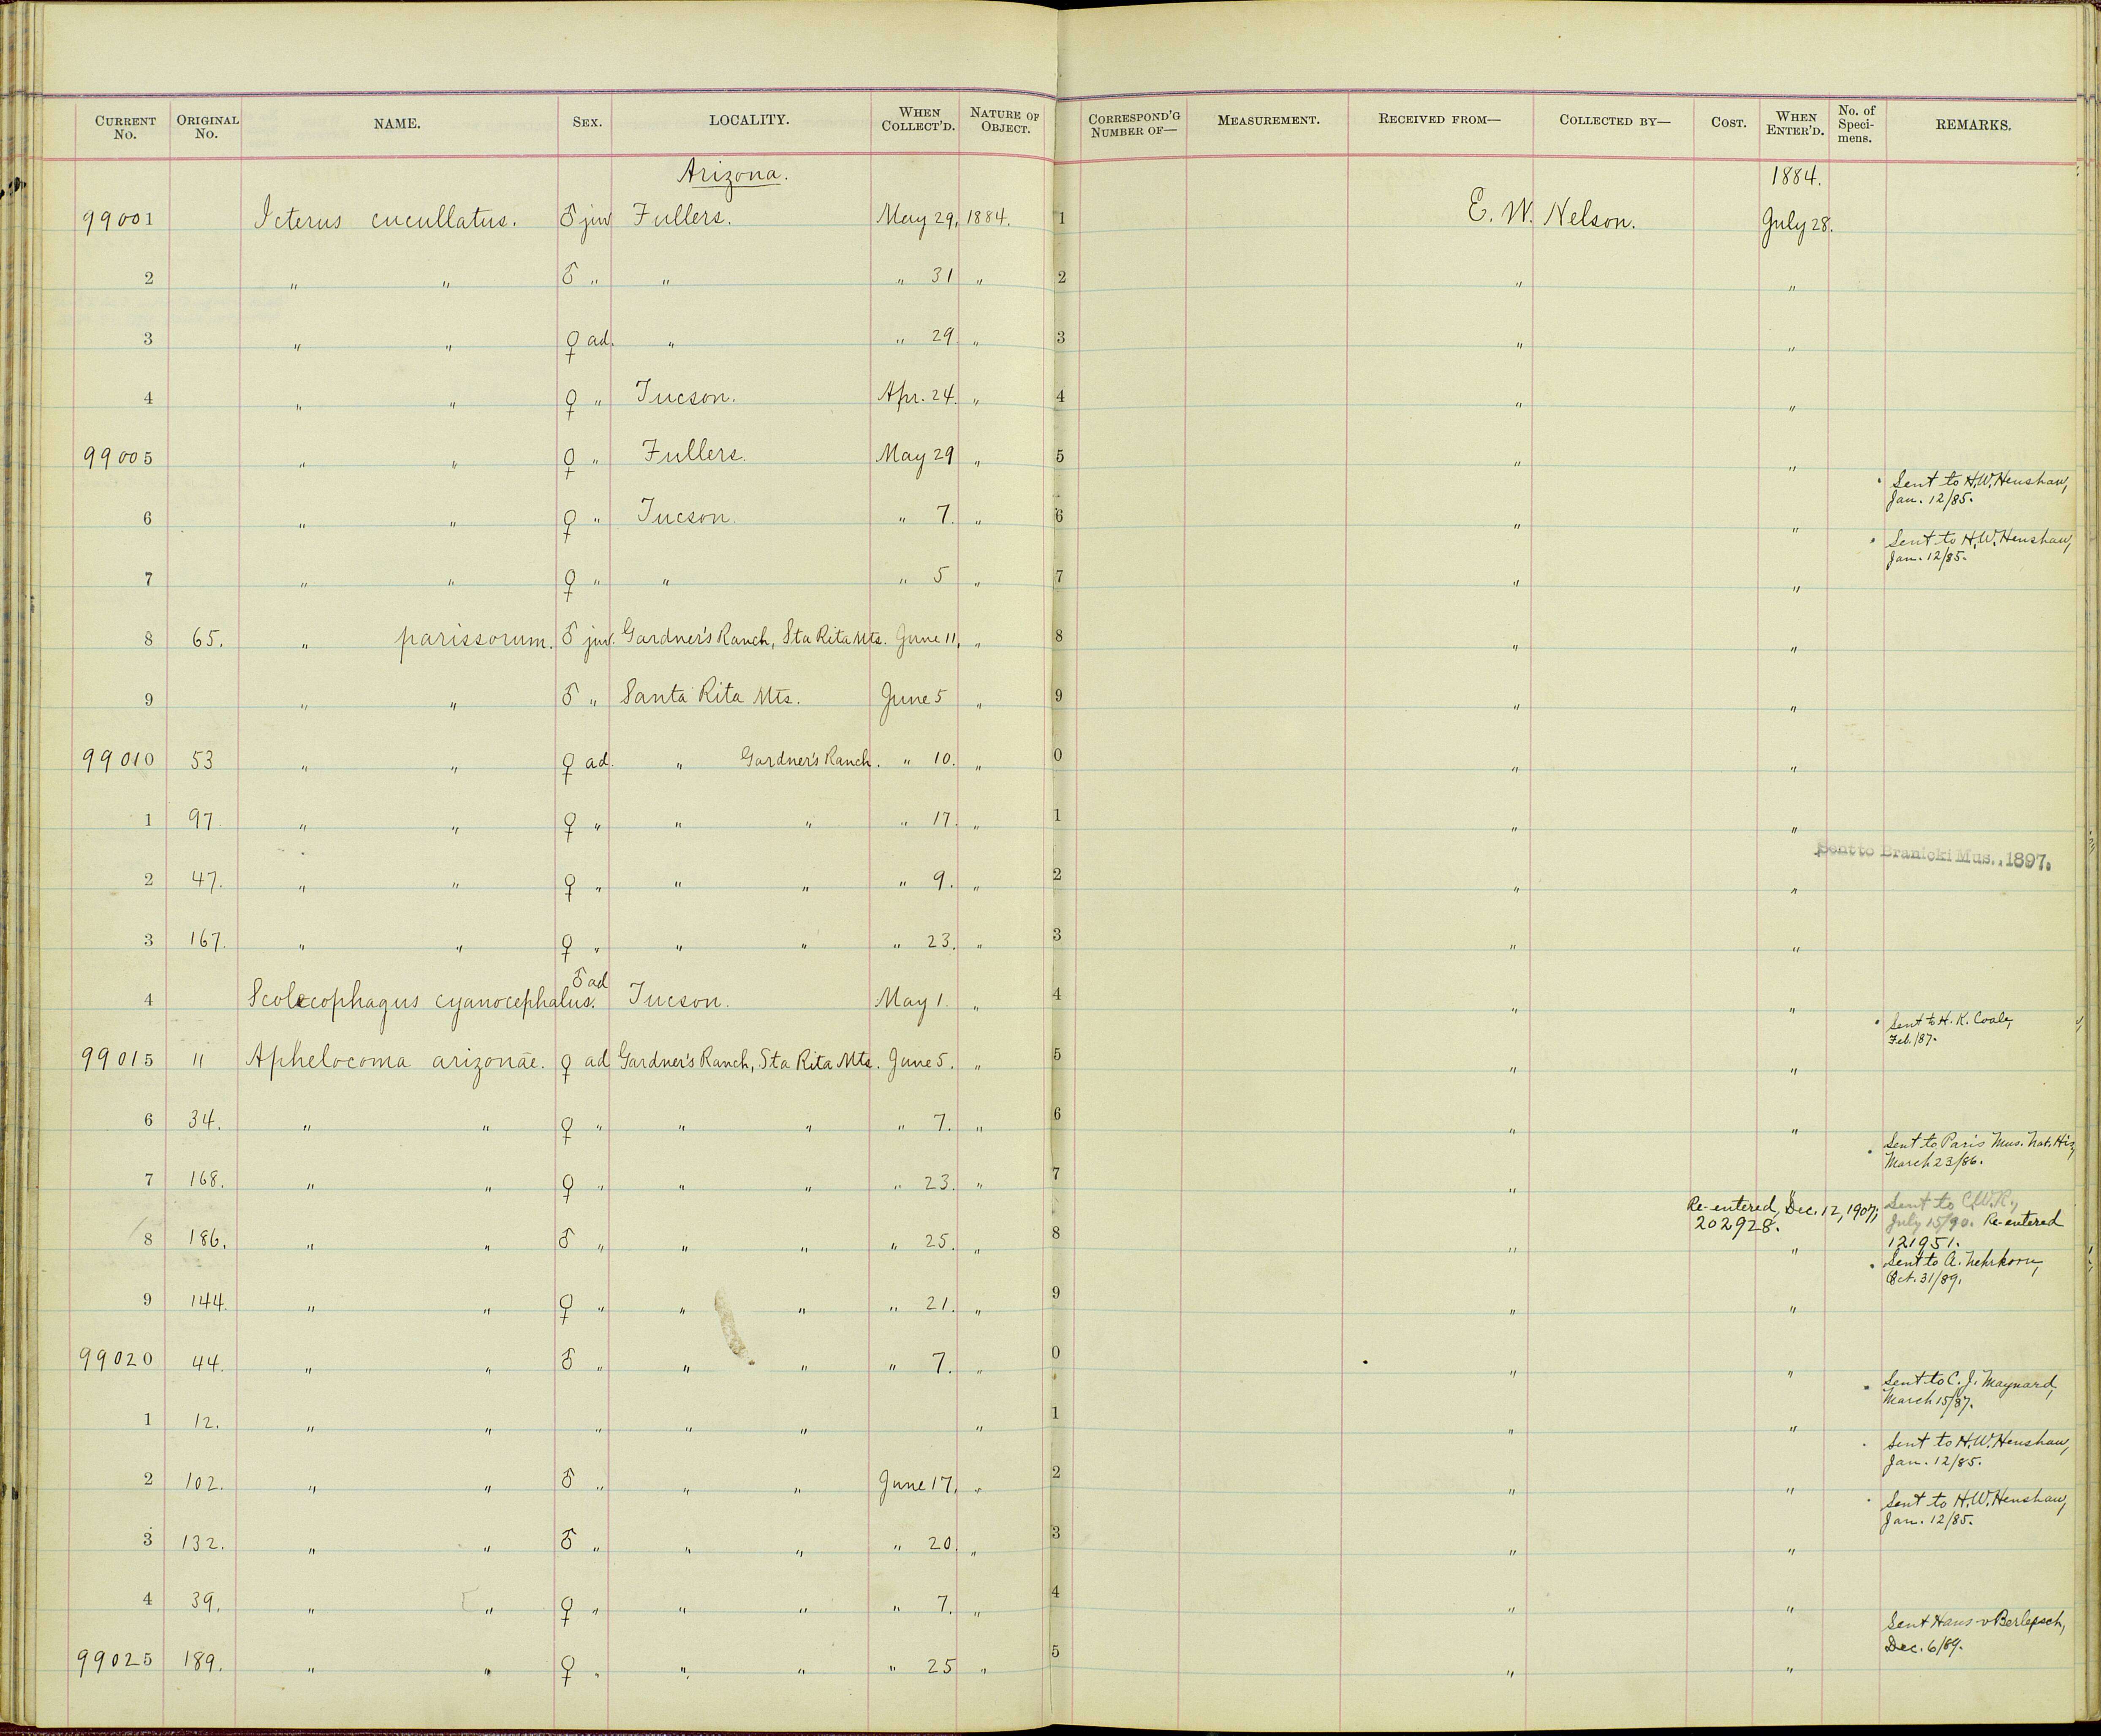 CURRENT No. ORIGINAL No. NAME. SEX. LOCALITY. WHEN COLLECT'D. NATURE OF OBJECT. CORRESPOND'G NUMBER OF— MEASUREMENT. RECEIVED FROM— COLLECTED BY— COST. WHEN ENTER'D. No. of Speci-mens. REMARKS.
Arizona. 1884.
99001 Icterus cucullatus. ♂ juv Fullers. May 29, 1884. 1 E. W. Nelson. July 28.
2 " " ♂ " " " 31 " 2 " "
3 " " ♀ ad. " " 29. " 3 " "
4 " " ♀ " Tucson. Apr. 24. " 4 " "
99005 " " ♀ " Fullers. May 29 " 5 " "
Sent to H.W. Henshaw,
Jan. 12/85.
6 " " ♀ " Tucson. " 7. " 6 " "
Sent to H.W. Henshaw,
Jan. 12/85.
7 " " ♀ " " " 5 " 7 " "
8 65. " parissorum. ♂ juv. Gardner's Ranch, Sta Rita Mts. June 11, " 8 " "
9 " " ♂ " Santa Rita Mts. June 5 " 9 " "
99010 53 " " ♀ ad. " Gardner's Ranch. " 10. " 0 " "
1 97 " " ♀ " " " " 17. " 1 " "
Sent to Branicki Mus., 1897.
2 47. " " ♀ " " " " 9. " 2 " "
3 167. " " ♀ " " " " 23. " 3 " "
4 Scolecophagus cyanocephalus. ♂ ad Tucson. May 1. " 4 " "
Sent to H. K. Coale,
Feb. /87.
99015 11 Aphelocoma arizonae. ♀ ad Gardner's Ranch, Sta Rita Mts. June 5. " 5 " "
6 34. " " ♀ " " " " 7. " 6 " "
Sent to Paris Mus. Nat. His,
March 23/86.
7 168. " " ♀ " " " " 23. " 7 " "
Re-entered, Dec. 12, 1907; Sent to C.W.R.,
202928. July 15/90. Re-entered
121951.
8 186. " " ♂ " " " " 25. " 8 " "
Sent to A. Nehrkorn,
Oct. 31/89.
9 144. " " ♀ " " " " 21. " 9 " "
99020 44. " " ♂ " " " " 7. " 0 " "
Sent to C. J. Maynard,
March 15/87.
1 12. " " " " " " 1 " "
Sent to H.W. Henshaw,
Jan. 12/85.
2 102. " " ♂ " " " June 17, " 2 " "
Sent to H.W. Henshaw,
Jan. 12/85.
3 132. " " ♂ " " " " 20. " 3 " "
4 39. " " ♀ " " " " 7. " 4 " "
Sent Hans v Berlepsch,
Dec. 6/89.
99025 189. " " ♀ " " " " 25 " 5 " "